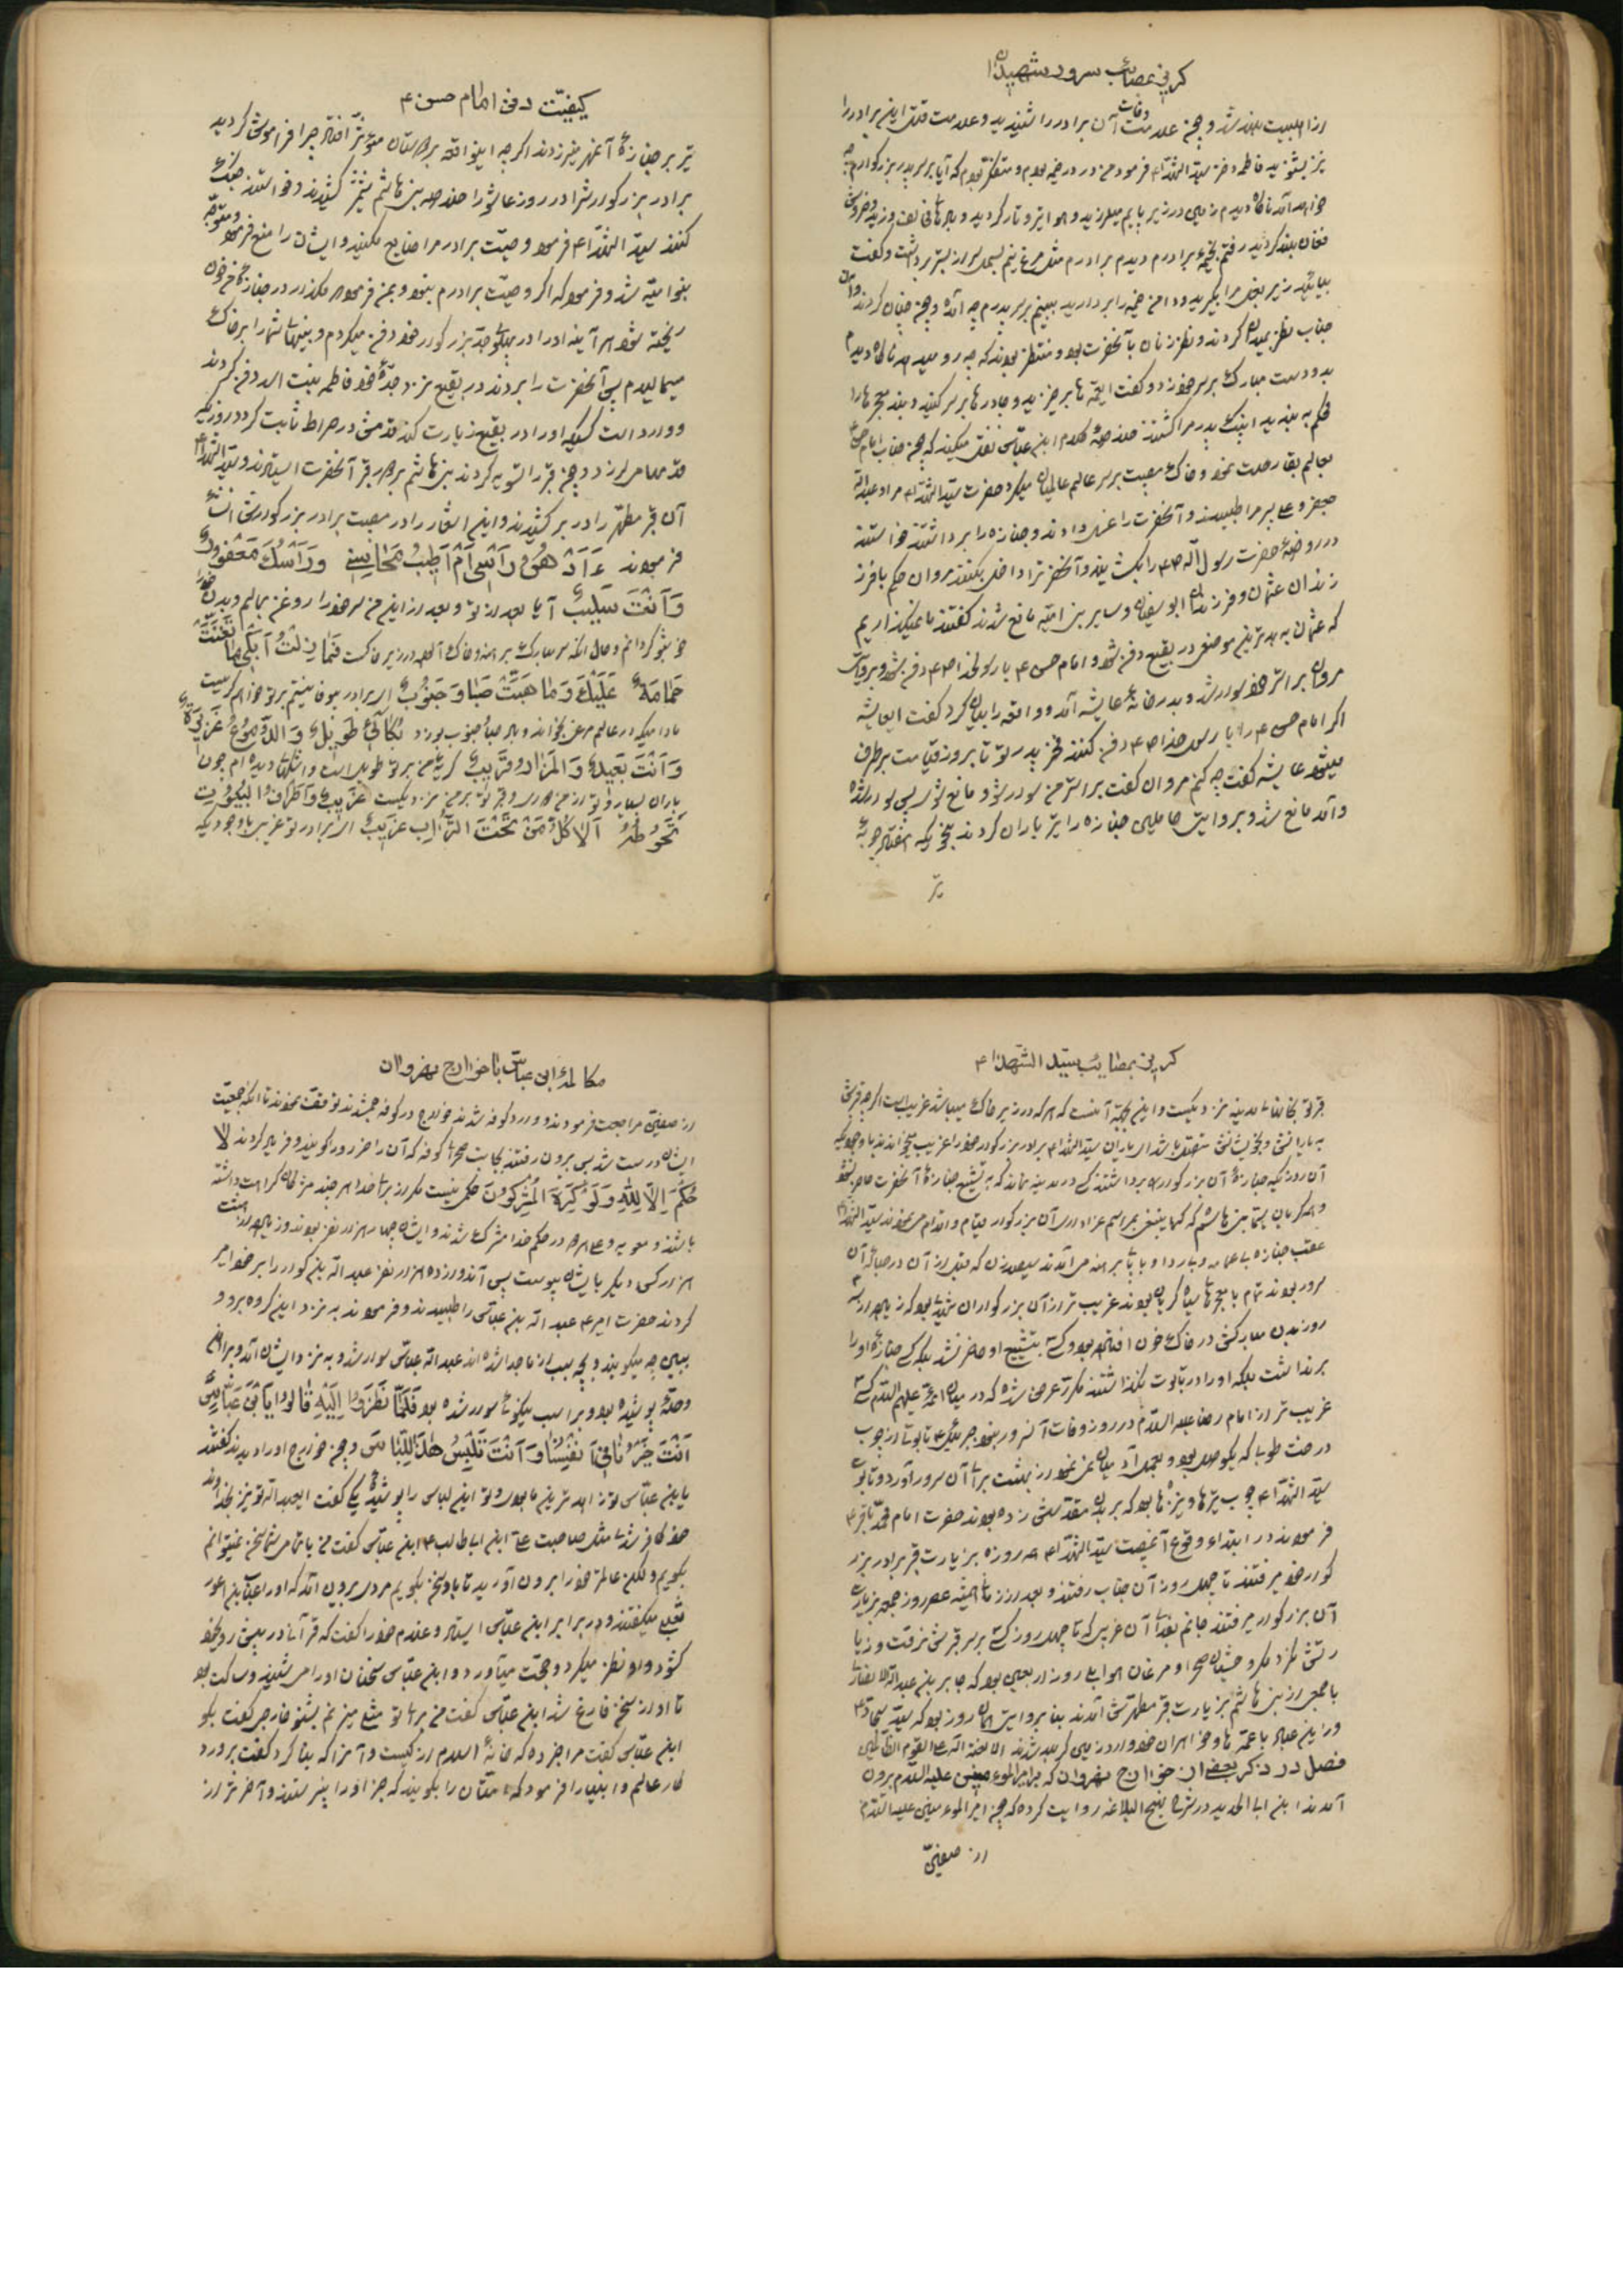 گریز بمصائب سرور شهیدان
از اهلبیت بلند شد و چون علامت وفات آن برادر را شنیدید و علامت قتل این برادر را
نیز بشنوید فاطمه دختر سید الشهدا ع فرمود من در در خیمه بودم و متفکر بودم که آیا بر سر پدر بزرگوارم چه
خواهد آمد ناگاه دیدم زمین در زیر پایم میلرزید و هوا تیره و تار گردید و
فغان بلند گردید رفتم بخیمه برادرم دیدم برادرم مثل مرغ نیم بسمل سر از بستر برداشت و گفت
بیائید زیر بغل مرا بگیرید و دامن خیمه را بردارید ببینم بر سر پدرم چه آمده و چون چنان کردند و آن
جناب نظر بمیدان کردند و نظر زنان بآنحضرت بود و منتظر بودند که چه رو میدهد ناگاه دیدم
بدو دست مبارک بر سر خود زد و گفت ایعمه ها برخیزید و چادرها بر سر کنید و بند معجرها را
محکم به بندید اینک پدر مرا کشتند خلاصه کلام ابن عباس نقل میکند که چون جناب امام حسن ع
بعالم بقا رحلت نمود و خاک مصیبت بر سر عالم عالمیان میکرد حضرت سید الشهدا ع مرا و عبدالله
جعفر و علی پسر مرا طلبیدند و آنحضرت را غسل دادند و جنازه را برداشتند خواستند
در روضه حضرت رسول الله ص را بگشایند و آنحضرترا داخل بکنند مروان حکم با فرز
زندان عثمان و فرزندان ابو سفیان و سایر بنی امیه مانع شدند گفتند ما نمیگذاریم
که عثمان به بدترین موضعی در بقیع دفن شود و امام حسن ع با رسولخدا ص دفن شود و بروایتی
مروان بر استر خود سوار شد و بدر خانه عایشه آمد و واقعه را بیان کرد گفت ایعایشه
اگر امام حسن ع را با رسول خدا ص دفن کنند فخر پدر تو تا بروز قیامت بر طرف
میشود عایشه گفت چه کنم مروان گفت بر استر من سوار شو و مانع شو پس سوار شده
و آمد مانع شد و بروایتی حاملین جنازه را تیر باران کردند بنحویکه هفتاد چوبه
تیر
کیفیت دفن امام حسن ع
تیر بر جنازه آنحضرت زدند اگر چه اینواقعه بر دوستان مؤثر افتاد چرا فراموش کردید
برادر بزرگوارش را در روز عاشورا خلاصه بنی هاشم شمشیر کشیدند و خواستند جنگ
کنند سید الشهدا ع فرمود وصیت برادر مرا ضایع مکنید و ایشان را منع فرمود و متوجه
بنو امیه شد و فرمود که اگر وصیت برادرم نبود و بمن فرموده مگذار در جنازه ام خون
ریخته شود هر آینه او را در پهلوی جد بزرگوار خود دفن میکردم و بینیهای شما را بر خاک
میمالیدم پس آنحضرت را بردند در بقیع نزد جده خود فاطمه بنت اسد دفن کردند
و وارد است کسیکه او را در بقیع زیارت کند قدمش در صراط ثابت گردد روزیکه
قدمها میلرزد و چون قبر را تسویه کردند بنی هاشم بر دور قبر آنحضرت ایستادند و سید الشهدا ع
آن قبر مطهر را در بر کشیدند و این اشعار را در مصیبت برادر بزرگوارش انشاء
فرمودند ءَاَدْهُنُ رَاْسى اَمْ اَطيبُ مَحاسِنى وَرَاْسُكَ مَعْفُورٌ
وَاَنْتَ سَليبٌ آیا بعد از تو و بعد از این من سر خود را روغن بمالم و بدن خود را
خوشبو گردانم و حال آنکه سر مبارک بر هنه و خاک آلوده در زیر خاکست فَما زِلْتُ اَبْكى ما تَغَنَّتْ
حَمامَةٌ عَلَيْكَ وَما هَبَّتْ صَبا وَجَنُوبٌ ای برادر بیوفا نیستم بر تو خواهم گریست
مادامیکه در عالم مرغی بخواند و باد صبا و جنوب بوزد بُكائى طَويلٌ وَالدُّمُوعُ غَزيرَةٌ
وَاَنْتَ بَعيدٌ وَالمَزارُ قَريبٌ گریه من بر تو طویل است و اشکهای دیده ام چون
باران بسیار و تو از من دوری و قبر تو بر من نزدیکست غَريبٌ وَاَطْرافُ البُيُوتِ
تَحُوطُهُ اَلا كُلُّ مَنْ تَحْتَ التُّرابِ غَريبٌ ای برادر تو غریبی با وجودیکه
گریز بمصائب سید الشهدا ع
قبر تو بخانهای مدینه نزدیکست و این بجهة آنست که هر که در زیر خاک میباشد غریب است اگر چه قبرش
به یارانش و خویشانش متصل باشد ای یاران سید الشهدا ع برادر بزرگوار خود را غریب میخوانند با وجودیکه
آن روزیکه جنازه آن بزرگوار را برداشتند کسی در مدینه نماند که به تشییع جنازه آنحضرت حاضر نشود
و همه گریان بنی هاشم که کما ینبغی بمراسم عزاداری آن بزرگوار قیام و اقدام می نمودند سید الشهدا ع
عقب جنازه با عمامه و با ردا و پای برهنه می آمدند سیصد زن که قبل از آن در حباله آن
سرور بودند تمام با معجرهای سیاه گریان بودند غریب تر از آن بزرگواران شهیدی بود که زیاده از سه
روز بدن مبارکش در خاک خون افتاده بود و کسی بتشییع او حاضر نشد بلکه کسی جنازه او را
برنداشت بلکه او را در تابوت نگذاشتند مکرر عرض شده که در میان ائمه علیهم السلام کسی
غریب تر از امام رضا علیه السلام در روز وفات آنسرور نبود جبرئیل ع تابوتی از چوب
درخت طوبا که یکوصله بود و بعمل آمد میان نمود از بهشت برای آن سرور آورد و تابوت
سید الشهدا ع چوب تیرها و نیزه ها بود که بر بدن مقدسش زده بودند حضرت امام محمد باقر ع
فرمودند در ابتداء وقوع آنمصیبت سید الشهدا ع هر روزه بزیارت قبر برادر بزر
گوار خود میرفتند تا چهل روز آن جناب رفتند و بعد از آن تا همیشه عصر روز جمعه بزیارت
آن بزرگوار میرفتند جانم بفدای آن غریبی که تا چهل روز کسی بر سر قبرش نرفت و زیا
رتش نکرد مگر وحشیان صحرا و مرغان هوا بلی روز اربعین بود که جابر بن عبدالله انصاری
با جمعی از بنی هاشم بزیارت قبر مطهرش آمدند بنا بروایتی همان روز بود که سید سجاد ع
و زینب علیها با عمه ها و خواهران خود وارد زمین کربلا شدند الا لعنة الله علی القوم الظالمین
فصل در ذکر بعضی از خوارج نهروان که بر امیر المومنین علیه السلام بیرون
آمدند ابن ابی الحدید در شرح نهج البلاغه روایت کرده که چون امیر المومنین علیه السلام
از صفین
مکالمه ابن عباس با خوارج نهروان
از صفین مراجعت فرمودند و وارد کوفه شدند خوارج در کوفه جمع شدند توقف نمودند تا آنکه جمعیت
ایشان درست شد پس بیرون رفتند بجانب صحرای کوفه که آن را حرورا گویند و فریاد کردند لا
حُكْمَ اِلّا لِلّهِ وَلَوْ كَرِهَ المُشْرِكُونَ حکمی نیست مگر از برای خدا هر چند مشرکان کراهت داشته
باشند و معویه و علی هر دو در حکم خدا مشرک شدند و ایشان چهار هزار نفر بودند و زیاده از هشت
هزار کس دیگر بایشان پیوست پس آن دوازده هزار نفر عبد الله بن کوا را بر خود امیر
کردند حضرت امیر ع عبد الله بن عباس را طلبیدند و فرمودند به نزد این گروه برو و
ببین چه میگویند و بچه سبب از ما جدا شده اند عبد الله عباس سوار شد و به نزد ایشان آمد و بر او
و حله پوشیده بود و بر اسب نیکوئی سوار شده بود فَلَمّا نَظَرُوا اِلَيْهِ قالُوا يَابْنَ عَبّاسٍ
اَنْتَ خَيْرُنا فى اَنْفُسِنا وَاَنْتَ تَلْبِسُ هٰذَا اللِّباسَ و چون خوارج او را دیدند گفتند
یابن عباس تو زاهد ترین ما بودی و تو این لباس را پوشیده یکی گفت ایعبد الله تو نیز بخدا وند
خود کافر شدی مثل صاحبت علی ابن ابا طالب ع ابن عباس گفت من با تمام شما سخن نمیتوانم
بگویم ولکن عالم خود را بیرون آورید تا با او سخن بگویم مردی بیرون آمد که او را عتاب بن اعور
ثعلبی میگفتند و در برابر ابن عباس ایستاد و عندم خود را گفت که قرآن در پیش رو بخود
گشود و او نظر میکرد و حجت میآورد و ابن عباس سخنان او را می شنید و ساکت بود
تا او از سخن فارغ شد ابن عباس گفت من برای تو مثلی میزنم بشنو خارجی گفت بگو
ابن عباس گفت مرا خبر ده که خانه اسلام از کیست و آنرا که بنا کرد گفت پروردگ
گار عالم و انبیا را فرمود که امتان را بگویند که جز او را نپرستند و آخر تر از